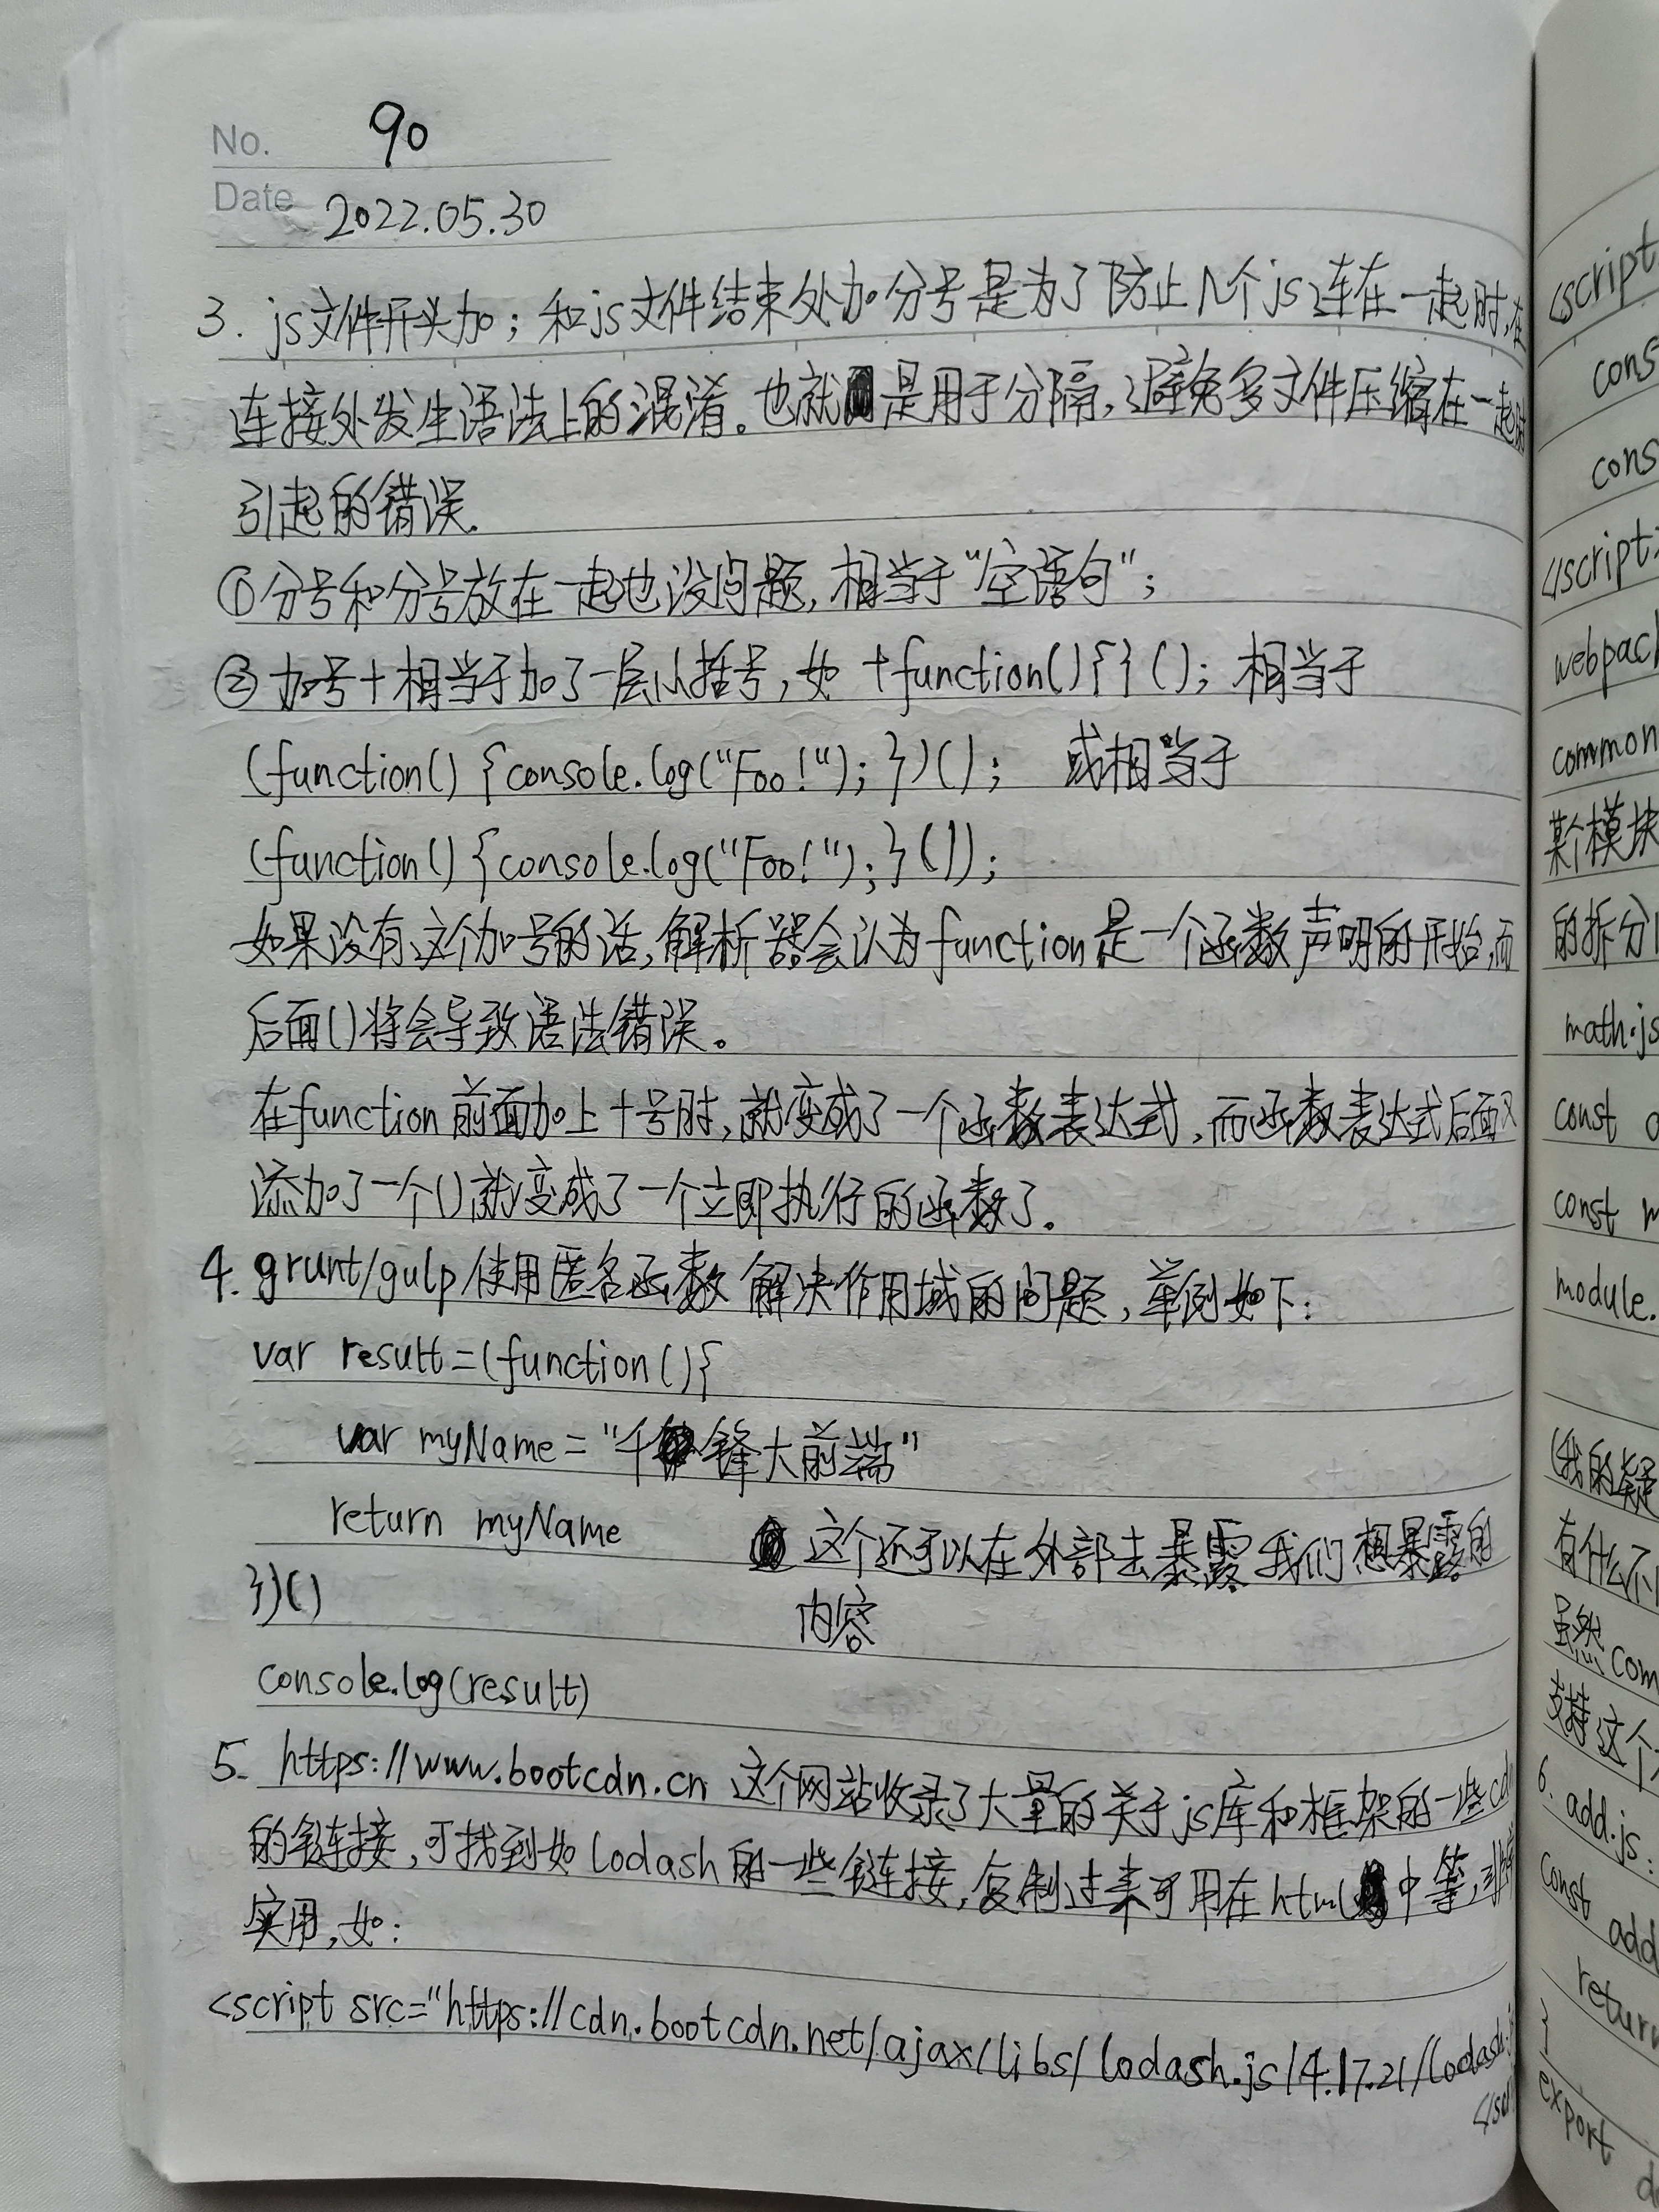 No. 90
Date 2022.05.30
3. js文件开头加；和js文件结束处加分号是为了防止几个js连在一起时,在
连接处发生语法上的混淆。也就是用于分隔,避免多文件压缩在一起时
引起的错误.
①分号和分号放在一起也没问题,相当于"空语句";
②加号+相当于加了一层小括号,如 +function(){}(); 相当于
(function() {console.log("Foo!"); })(); 或相当于
(function() {console.log("Foo!"); }());
如果没有这个加号的话,解析器会认为function是一个函数声明的开始,而
后面()将会导致语法错误。
在function前面加上+号时,就变成了一个函数表达式,而函数表达式后面又
添加了一个()就变成了一个立即执行的函数了.
4. grunt/gulp使用匿名函数解决作用域的问题,举例如下:
var result=(function(){
var myName="千锋大前端"
return myName 这个还可以在外部去暴露我们想暴露的
})() 内容
console.log(result)
5. https://www.bootcdn.cn 这个网站收录了大量的关于js库和框架的一些cdn
的链接,可找到如lodash的一些链接,复制过来可用在html中等,非常
实用,如:
<script src="https://cdn.bootcdn.net/ajax/libs/lodash.js/4.17.21/lodash.
<script
cons
cons
</script>
webpack
common
某个模块
的拆分
math.js
const
const
module.
(我的疑
有什么不
虽然com
支持这个
6. add.js:
const add
return
}
export